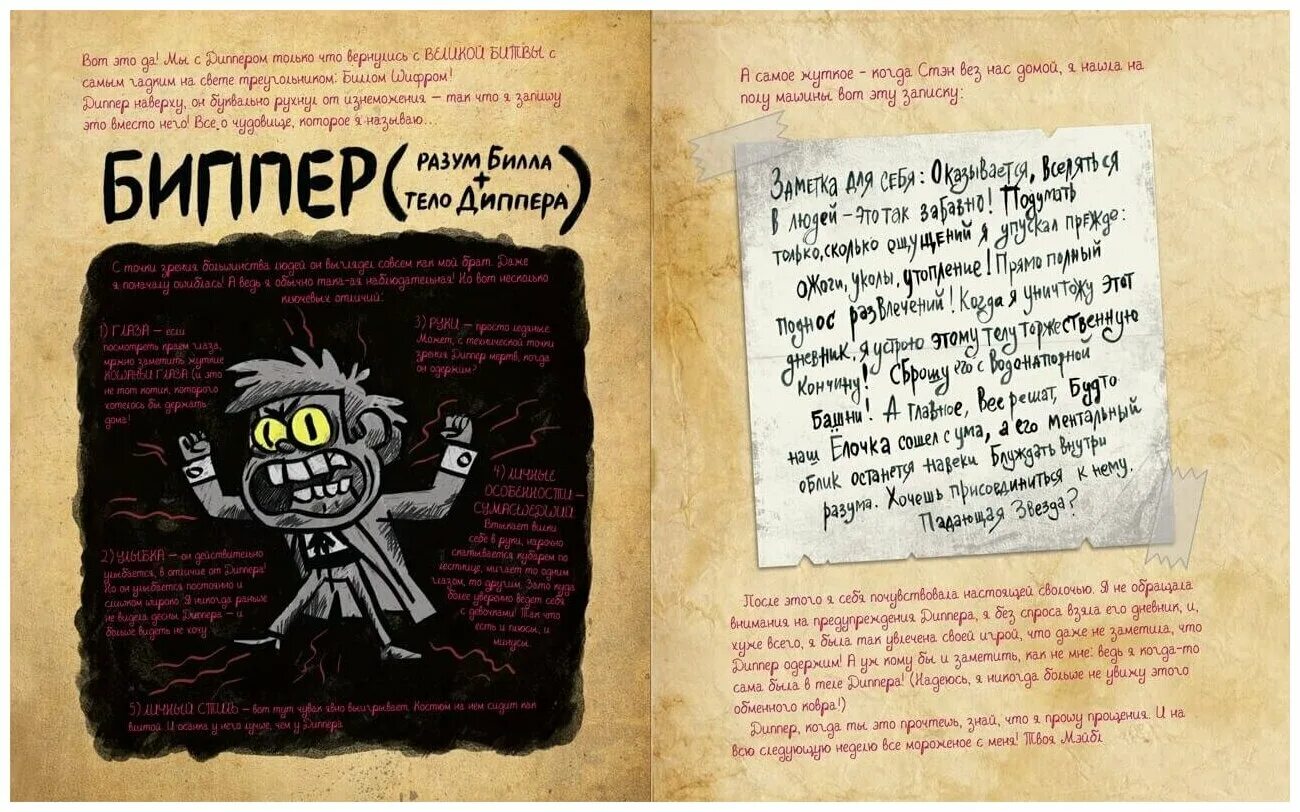 Вот это да! Мы с Диппером только что вернулись с ВЕЛИКОЙ БИТВЫ с
самым гадким на свете треугольником: Биллом Шифром!
Диппер наверху, он буквально рухнул от изнеможения – так что я запишу
это вместо него! Все о чудовище, которое я называю...
БИППЕР (РАЗУМ БИЛЛА
+
ТЕЛО ДИППЕРА)
С точки зрения большинства людей он выглядел совсем как мой брат. Даже
я поначалу ошиблась! А ведь я обычно така-ая наблюдательная! Но вот несколько
ключевых отличий:
1) ГЛАЗА – если
посмотреть прям глаза,
можно заметить жуткие
КОШАЧЬИ ГЛАЗА (и это
не тот котик, которого
хотелось бы держать
дома!
2) УЛЫБКА – он действительно
улыбается, в отличие от Диппера!
Но он улыбается постоянно и
слишком широко. Я никогда раньше
не видела десны Диппера – и
больше видеть не хочу
3) РУКИ – просто ледяные
Может, с технической точки
зрения Диппер мертв, когда
он одержим?
4) ЛИЧНЫЕ
ОСОБЕННОСТИ –
СУМАСШЕДШИЙ
Втыкает вилки
себе в руки, нарочно
скатывается кубарем по
лестнице, мигает то одним
глазом, то другим. Зато куда
более уверенно ведет себя
с девочками! Так что
есть и плюсы, и
минусы.
5) ЛИЧНЫЙ СТИЛЬ – вот тут чувак явно выигрывает. Костюм на нем сидит как
влитой. И осанка у него лучше, чем у Диппера
А самое жуткое – когда Стэн вез нас домой, я нашла на
полу машины вот эту записку:
Заметка для себя: Оказывается, вселяться
в людей – это так забавно! Подумать
только, сколько ощущений я упускал прежде:
ожоги, уколы, утопление! Прямо полный
поднос развлечений! Когда я уничтожу этот
дневник, я устрою этому телу торжественную
кончину! Сброшу его с водонапорной
башни! А главное, все решат, будто
наш Ёлочка сошел с ума, а его ментальный
облик останется навеки блуждать внутри
разума. Хочешь присоединиться к нему,
Падающая Звезда?
После этого я себя почувствовала настоящей сволочью. Я не обращала
внимания на предупреждения Диппера, я без спроса взяла его дневник, и,
хуже всего, я была так увлечена своей игрой, что даже не заметила, что
Диппер одержим! А уж кому бы и заметить, как не мне: ведь я когда-то
сама была в теле Диппера! (Надеюсь, я никогда больше не увижу этого
обменного ковра!)
Диппер, когда ты это прочтешь, знай, что я прошу прощения. И на
всю следующую неделю все мороженое с меня! Твоя Мэйбл